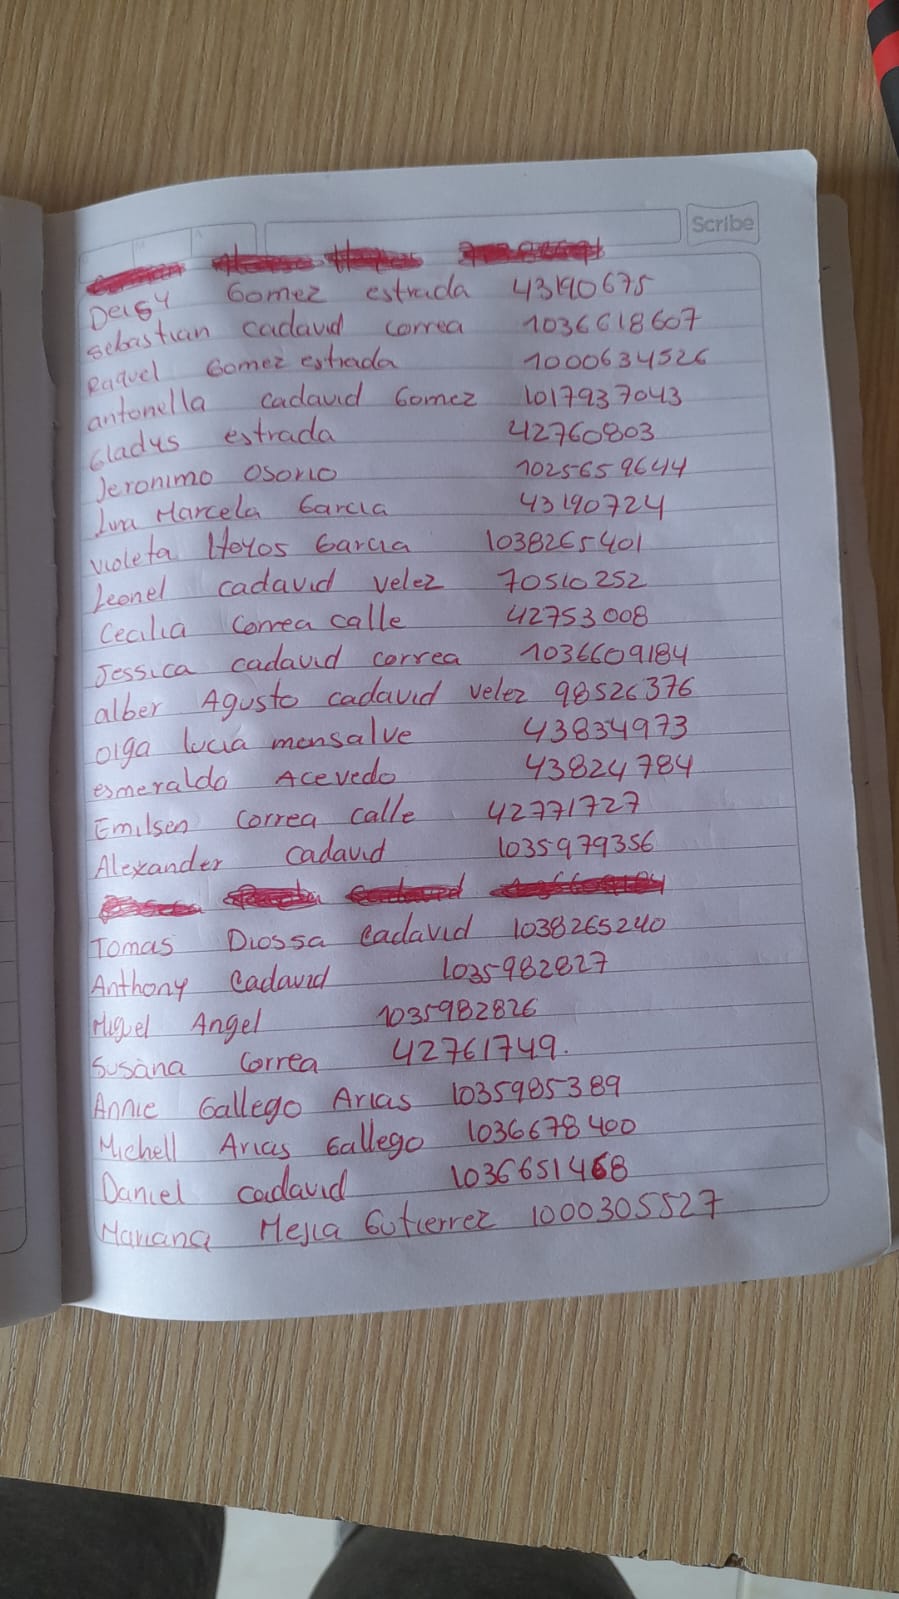 Scribe
Deisy Gomez estrada 43190675
sebastian cadavid correa 1036618607
Raquel Gomez estrada 1000634526
antonella cadavid Gomez 1017937043
Gladys estrada 42760803
Jeronimo Osorio 1025659644
Marcela Garcia 43190724
violeta Hoyos Garcia 1038265401
Leonel cadavid velez 70510252
Cecilia Correa calle 42753008
Jessica cadavid correa 1036609184
alber Agusto cadavid velez 98526376
olga lucia monsalve 43834973
esmeralda Acevedo 43824784
Emilsen Correa calle 42771727
Alexander cadavid 1035979356
Tomas Diossa Cadavid 1038265240
Anthony Cadavid 1035982827
Miguel Angel 1035982826
Susana Correa 42761749.
Annie Gallego Arias 1035985389
Michell Arias Gallego 1036678400
Daniel cadavid 1036651468
Mariana Mejia Gutierrez 1000305527